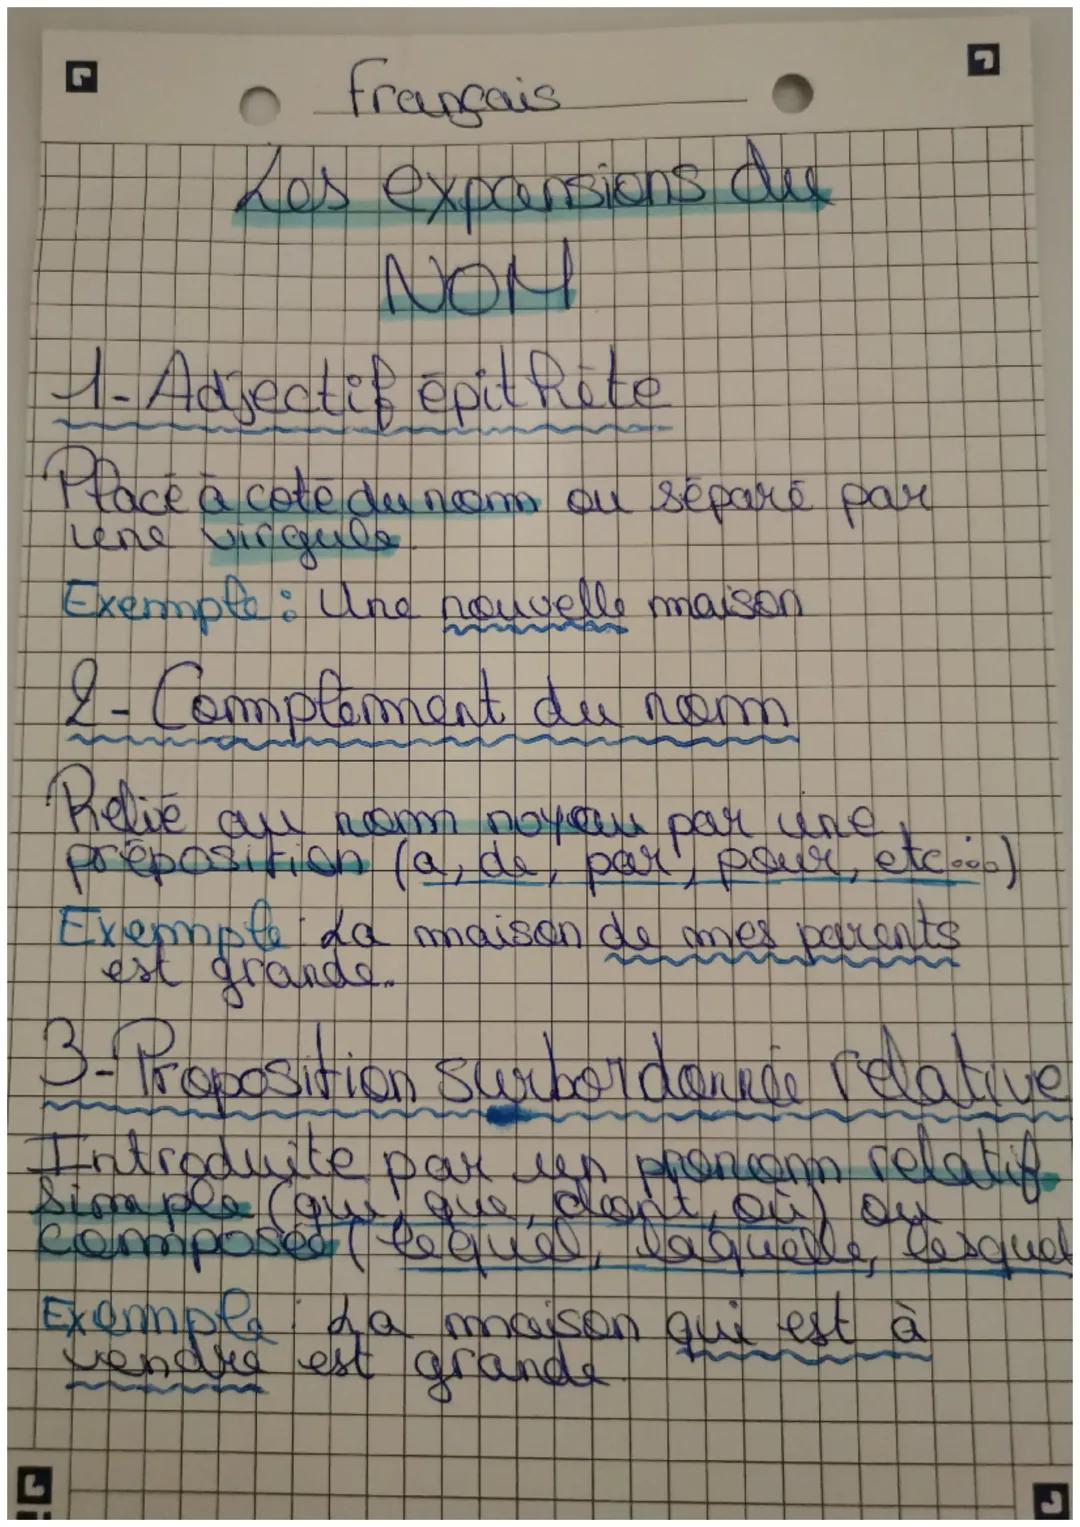 Français
Les expansions du
NOM
1- Adjectif épithète
Placé à coté du nom ou séparé par
une virgule
Exemple : Une nouvelle maison
2- Complément du nom
Relié au nom noyau par une
préposition (a, de, par, pour, etc...)
Exemple : La maison de mes parents
est grande.
3- Proposition surbordonnée relative
Introduite par un pronom relatif
simple (qui, que, dont, où) ou
composée (lequel, laquelle, lesquel
Exemple : La maison qui est à
vendre est grande